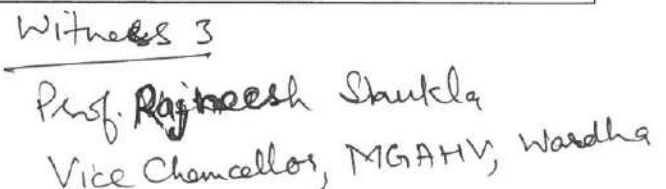 Witness 3
Prof. Rajneesh Shukla
Vice Chancellor, MGAHV, Wardha